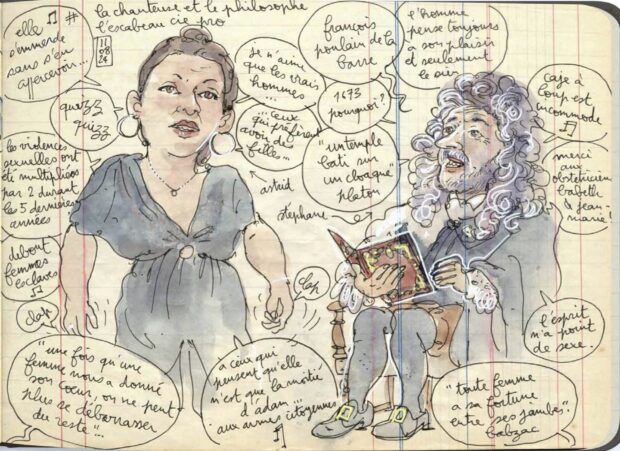 la chanteuse et le philosophe
l'escabeau cie pro
11
08
24
elle ♫ #
s'emmerde
sans s'en
apercevoir...
quezz
quizz
je n'aime
que les vrais
hommes...
"ceux
qui préfèrent
avoir de
filles...
astrid
stephane
françois
poulain de la
barre
1673
pourquoi?
"un temple
bati sur
un cloaque"
platon
l'homme
pense toujours
a son plaisir
et seulement
le sien
cage à
loup est
incommode
♫
merci
aux
obstetricien
babeth
& jean-
marie!
les violences
sexuelles ont
été multipliées
par 2 durant
les 5 dernières
années
debout
femmes
esclaves
♫
clap
clap
"une fois qu'une
femme nous a donné
son coeur, on ne peut
plus se débarrasser
du reste"...
a ceux qui
pensent qu'elle
n'est que la moitié
d'adam...
aux armes citoyennes
♫
l'esprit
n'a point
de sexe.
"toute femme
a sa fortune
entre ses jambes".
balzac